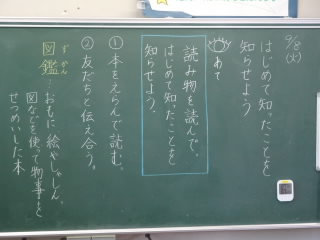 9/8(火)
はじめて知ったことを
知らせよう
めあて
読み物を読んで、
はじめて知ったことを
知らせよう。
①本をえらんで読む。
②友だちと伝え合う。
ずかん
図鑑…おもに絵やしゃしん、
図などを使って物事を
せつめいした本